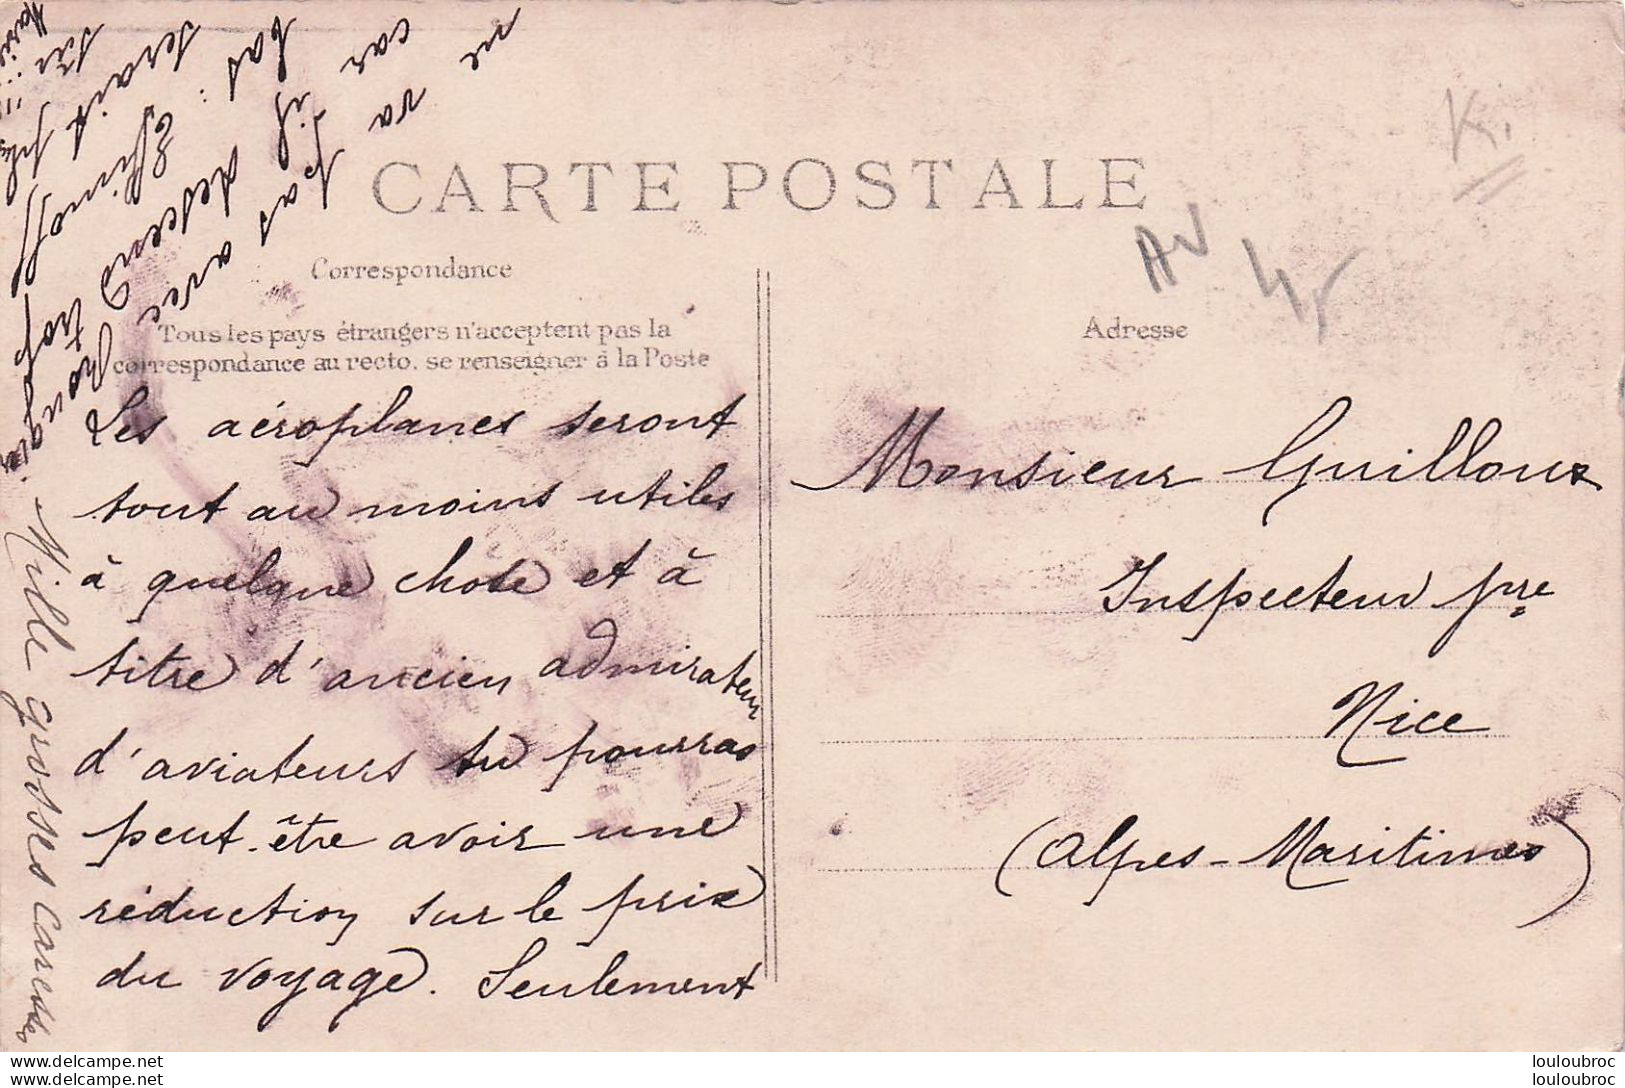 CARTE POSTALE
Correspondance
Tous les pays étrangers n'acceptent pas la
correspondance au recto. se renseigner à la Poste
Adresse
Les aéroplanes seront
tout au moins utiles
à quelque chose et à
titre d'ancien admirateur
d'aviateurs tu pourras
peut-être avoir une
réduction sur le prix
du voyage. Seulement
ne va pas avec Rougier
car il descend trop
bas : Efimoff
serait plus
sûr
Mille grosses caresses
Monsieur Guilloux
Inspecteur pre
Nice
(Alpes-Maritimes)
AV
K.
louloubroc
louloubroc
www.delcampe.net
www.delcampe.net